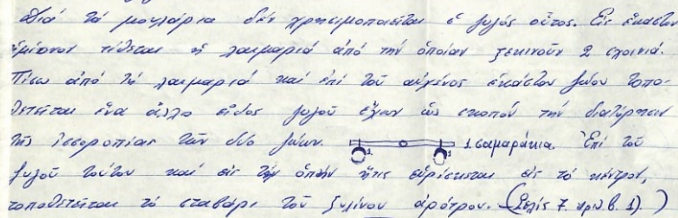 Διά τά μουλάρια δέν χρησιμοποιεῖται ὁ ζυγός οὗτος. Εἰς ἕκαστον
ἡμίονον τίθεται ἡ λαιμαριά ἀπό τήν ὁποίαν ξεκινοῦν 2 σχοινιά.
Πίσω ἀπό τή λαιμαριά καί ἐπί τοῦ αὐχένος ἑκάστου ζώου τοπο-
θετεῖται ἕνα ἄλλο εἶδος ζυγοῦ ἔχων ὡς σκοπόν τήν διατήρησιν
τῆς ἰσσοροπίας τῶν δύο ζώων. 1 1 1 σαμαράκια. Ἐπί τοῦ
ζυγοῦ τούτου καί εἰς τήν ὀπήν ἥτις εὑρίσκεται εἰς τό κέντρον,
τοποθετεῖται τό σταβάρι τοῦ ξυλίνου ἀρότρου. (Σελίς 7 ἀριθ. 1).)